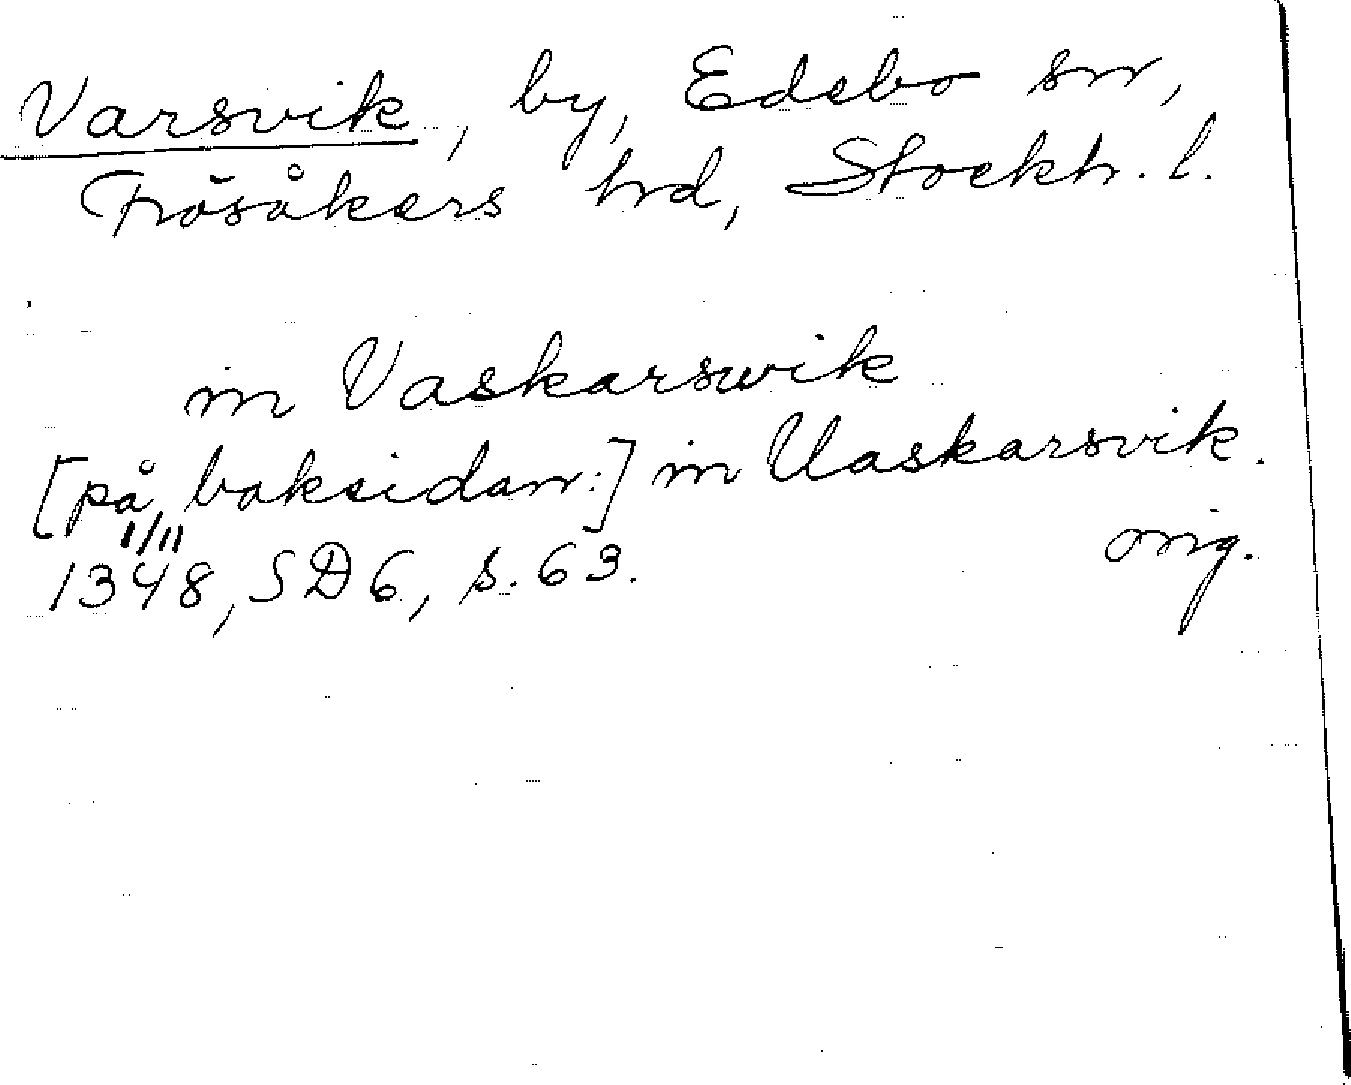 Varsvik, by, Edebo sn,
Frösåkers hd, Stockh. l.
in Vaskarswik
[på baksidan:] in Uaskarsvik.
1/11
1348, SD 6, s. 63. orig.